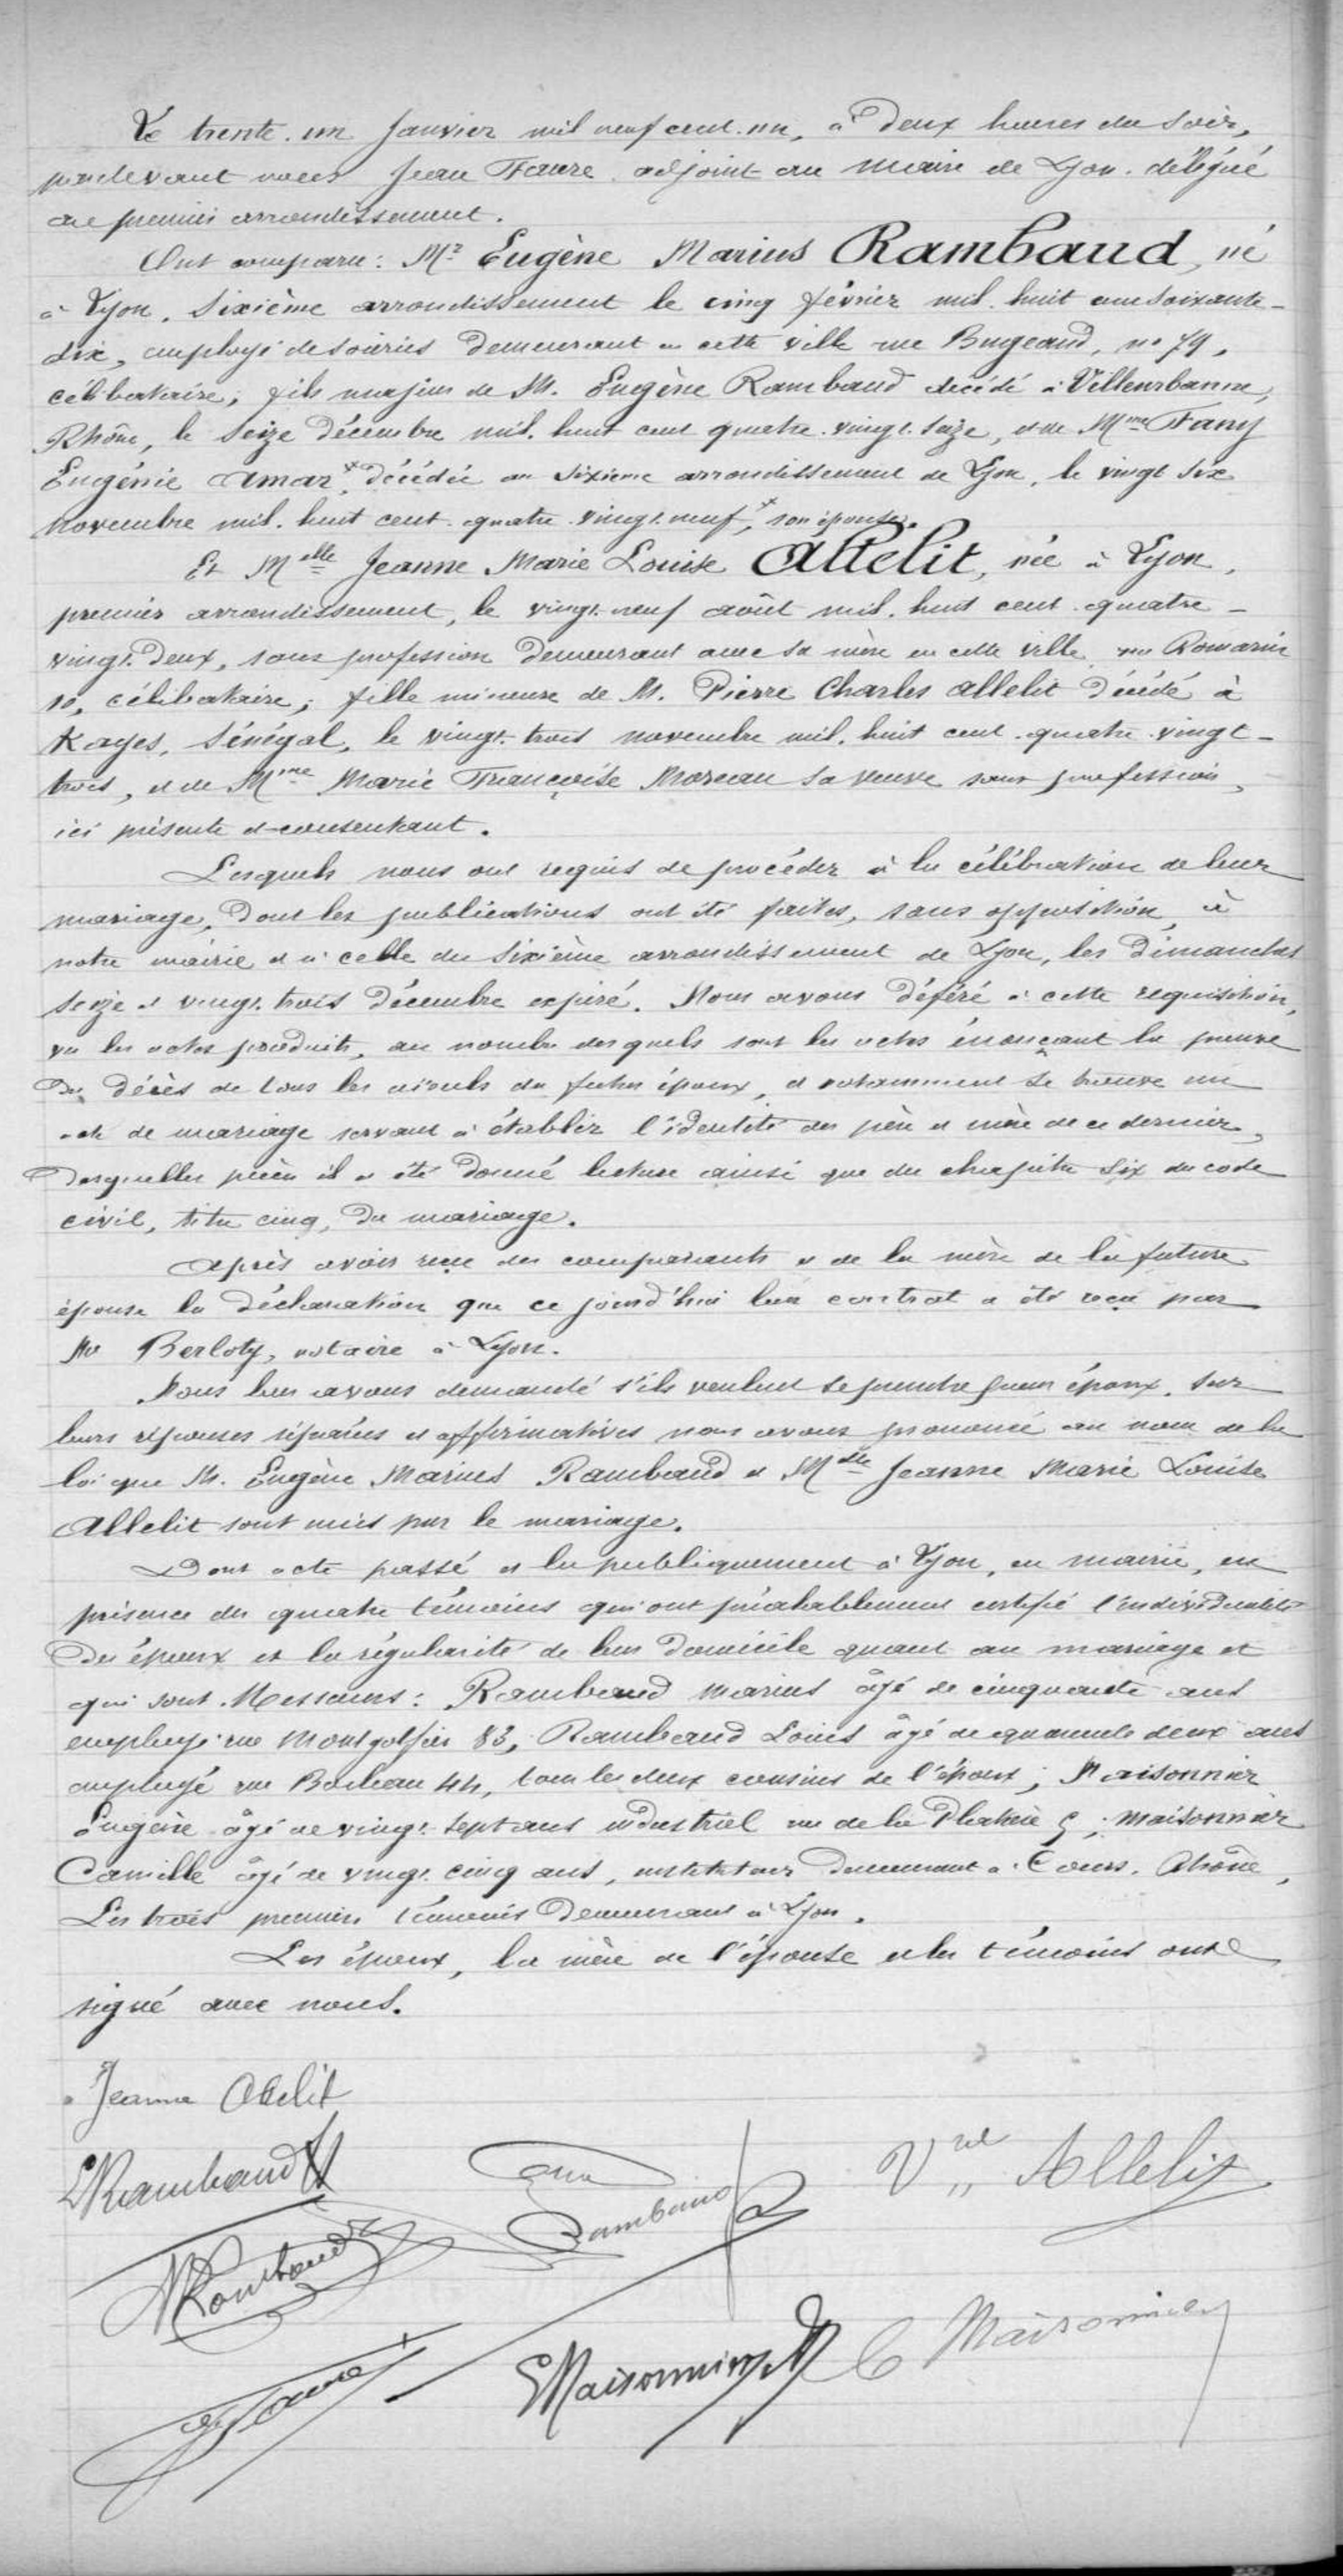 Le trente. un Janvier mil neuf cent. un, à Deux heures du soir,
pardevant nous Jean Faure adjoint au Maire de Lyon. délégué
au premier arrondissement.
Ont comparu: Mr Eugène Marius Rambaud, né
à Lyon, Sixième arrondissement le cinq février mil. huit cent soixante-
dix, employé de soieries Demeurant en cette ville rue Bugeaud, no 79,
célibataire, fils majeur de M. Eugène Rambaud décédé à Villeurbanne,
Rhône, le Seize Décembre mil. huit cent quatre. vingt. Seize, et de Mme Fany
Eugénie Amar, Décédée au Sixième arrondissement de Lyon, le vingt six
Novembre mil. huit cent. quatre. vingt. neuf, son épouse.
Et Melle Jeanne Marie Louise Allelit, née à Lyon,
premier arrondissement, le vingt-neuf août mil. huit cent. quatre-
vingt. Deux, sans profession Demeurant avec sa mère en cette ville rue Romarin
10, célibataire, fille mineure de M. Pierre Charles Allelit Décédé à
Kayes, Sénégal, le vingt. trois novembre mil. huit cent. quatre. vingt-
trois, et de Mme Marie Françoise Moreau sa veuve sans profession,
ici présente et consentant.
Lesquels nous ont requis de procéder à la célébration de leur
mariage, Dont les publications ont été faites, sans opposition, à
notre mairie et à celle du Sixième arrondissement de Lyon, les Dimanches
Seize et vingt. trois Décembre expiré. Nous avons Déféré à cette requisition,
vu les actes produits, au nombre desquels sont les actes énonçant la preuve
Du Décès de tous les aïeuls du futur époux, et notamment se trouve un
acte de mariage servant à établir l'identité des père et mère de ce dernier,
Desquelles pièces il a été Donné lecture ainsi que du chapitre Six du code
civil, titre cinq, Du mariage.
Après avoir reçu des comparants et de la mère de la future
épouse la Déclaration que ce jourd'hui leur contrat a été reçu par
Me Berloty, notaire à Lyon.
Nous leur avons demandé s'ils veulent se prendre pour époux. Sur
leurs réponses séparées et affirmatives nous avons prononcé au nom de la
loi que M. Eugène Marius Rambaud et Melle Jeanne Marie Louise
Allelit sont unis par le mariage.
Dont acte passé et lu publiquement à Lyon, en mairie, en
présence des quatre témoins qui ont préalablement certifié l'individualité
Des époux et la régularité de leur Domicile quant au mariage et
qui sont Messieurs: Rambaud Marius âgé de cinquante ans
employé rue Montgolfier 83, Rambaud Louis âgé de quarante deux ans
employé rue Boileau 44, tous les deux cousins de l'époux; Maisonnier
Eugène âgé de vingt. sept ans industriel rue de la Platière 5; Maisonnier
Camille âgé de vingt. cinq ans, instituteur Demeurant à Cours. Rhône,
Les trois premiers témoins Demeurant à Lyon.
Les époux, la mère de l'épouse et les témoins ont
signé avec nous.
Jeanne Allelit
ERambaud
Rambaud
Vve Allelit
MRambaud
EMaisonnier
C Maisonnier
Faure